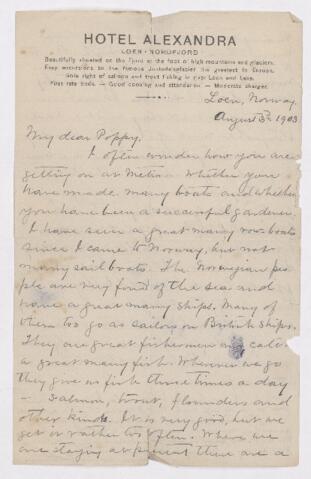 HOTEL ALEXANDRA
LOEN - NORDFJORD
Beautifully situated on the Fjord at the foot of high mountains and glaciers.
Easy excursions to the famous Jostedalsbræ the greatest in Europe.
Sole right of salmon and trout fishing in river Loen and Lake.
First rate beds. — Good cooking and attendance — Moderate charges.
Loen, Norway.
August 3rd 1903
My dear Poppy,
I often wonder how you are
getting on at Metis. Whether you
have made many boats and whether
you have been a successful gardener.
I have seen a great many row-boats
since I came to Norway, but not
many sail boats. The Norwegian peo-
ple are very fond of the sea and
have a great many ships. Many of
them too go as sailors on British ships.
They are great fishermen and catch
a great many fish. Wherever we go
they give us fish three times a day
- salmon, trout, flounders and
other kinds. It is very good, but we
get it rather too often. Where we
are staying at present there are a